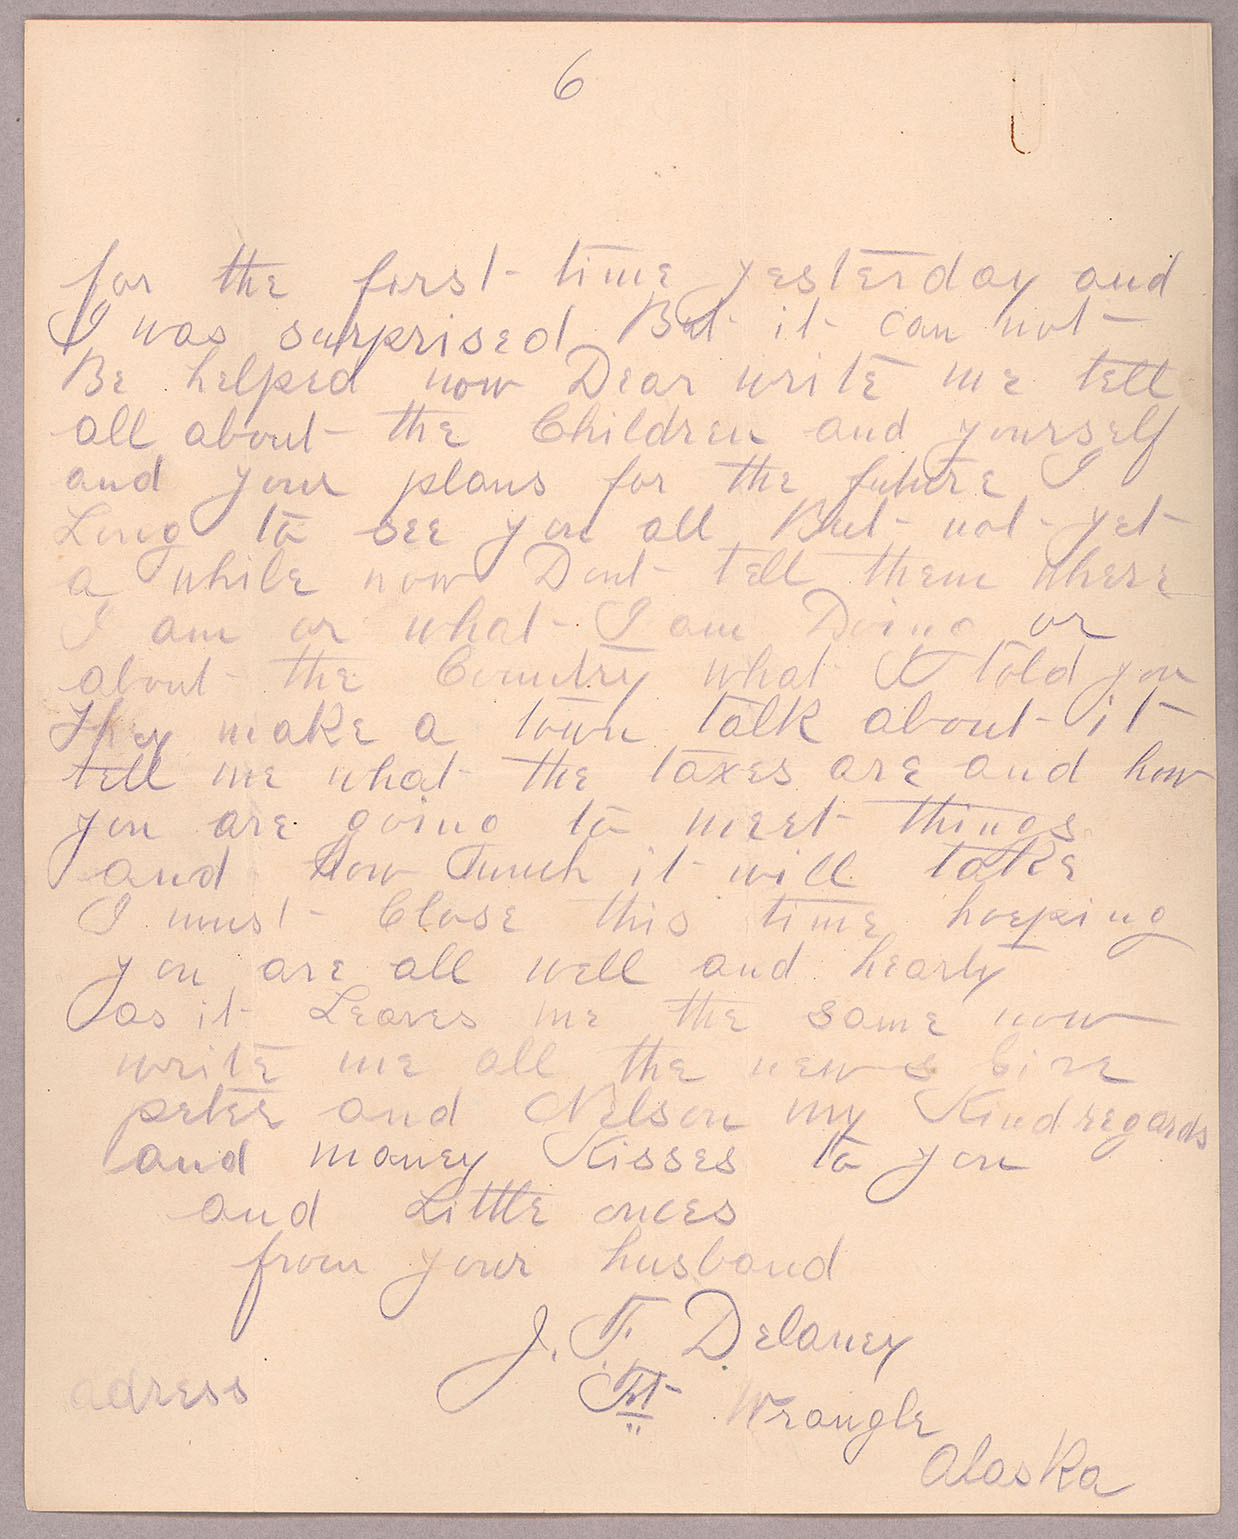 6
for the first time yesterday and
I was surprised But it can not
Be helped now Dear write me tell
all about the Children and yourself
and your plans for the future I
Long to see you all But not yet
a while now Dont tell them where
I am or what I am Doing or
about the Country what I told you
They make a town talk about it
tell me what the taxes are and how
you are going to meet things
and how much it will take
I must Close this time hoeping
you are all well and hearty
as it Leaves me the same now
write me all the news Give
peter and Nelson my Kind regards
and maney Kisses to you
and Little onees
from your husband
J. F. Delaney
adress Frt Wrangle
Alaska